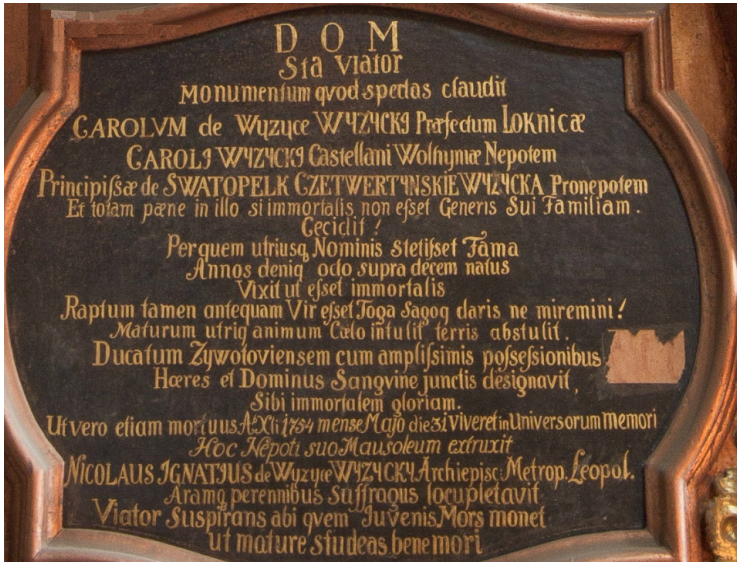 D O M
Sta Viator
Monumentum qvod spectas claudit
CAROLVM de Wyzyce WYZYCKI Præfectum LOKnicæ
CAROLI WYZYCKI Castellani Wolhyniæ Nepotem
Principiſsæ de SWATOPELK CZETWERTYNSKIE WYZYCKA Pronepotem
Et totam pæne in illo si immortalis non eſset Generis Sui Familiam.
Cecidit !
Per quem utriusq Nominis stetiſset Fama
Annos deniq octo supra decem natus
Vixit ut eſset immortalis
Raptum tamen antequam Vir eſset Toga sagoq claris ne miremini !
Maturum utriq animum Cælo intulit terris abstulit.
Ducatum Zywotoviensem cum ampliſsimis poſseſsionibus
Hæres et Dominus Sangvine junctis designavit,
Sibi immortalem gloriam.
Ut vero etiam mortuus A: Xti 1754 mense Majo die 31 viveret in Universorum Memori
Hoc Nepoti suo Mausoleum extruxit
NICOLAUS IGNATIUS de Wyzyce WYZYCKY Archiepisc: Metrop. Leopol.
Aramq perennibus Suffragiis locupletavit
Viator Suspirans abi qvem Juvenis Mors monet
ut mature studeas bene mori